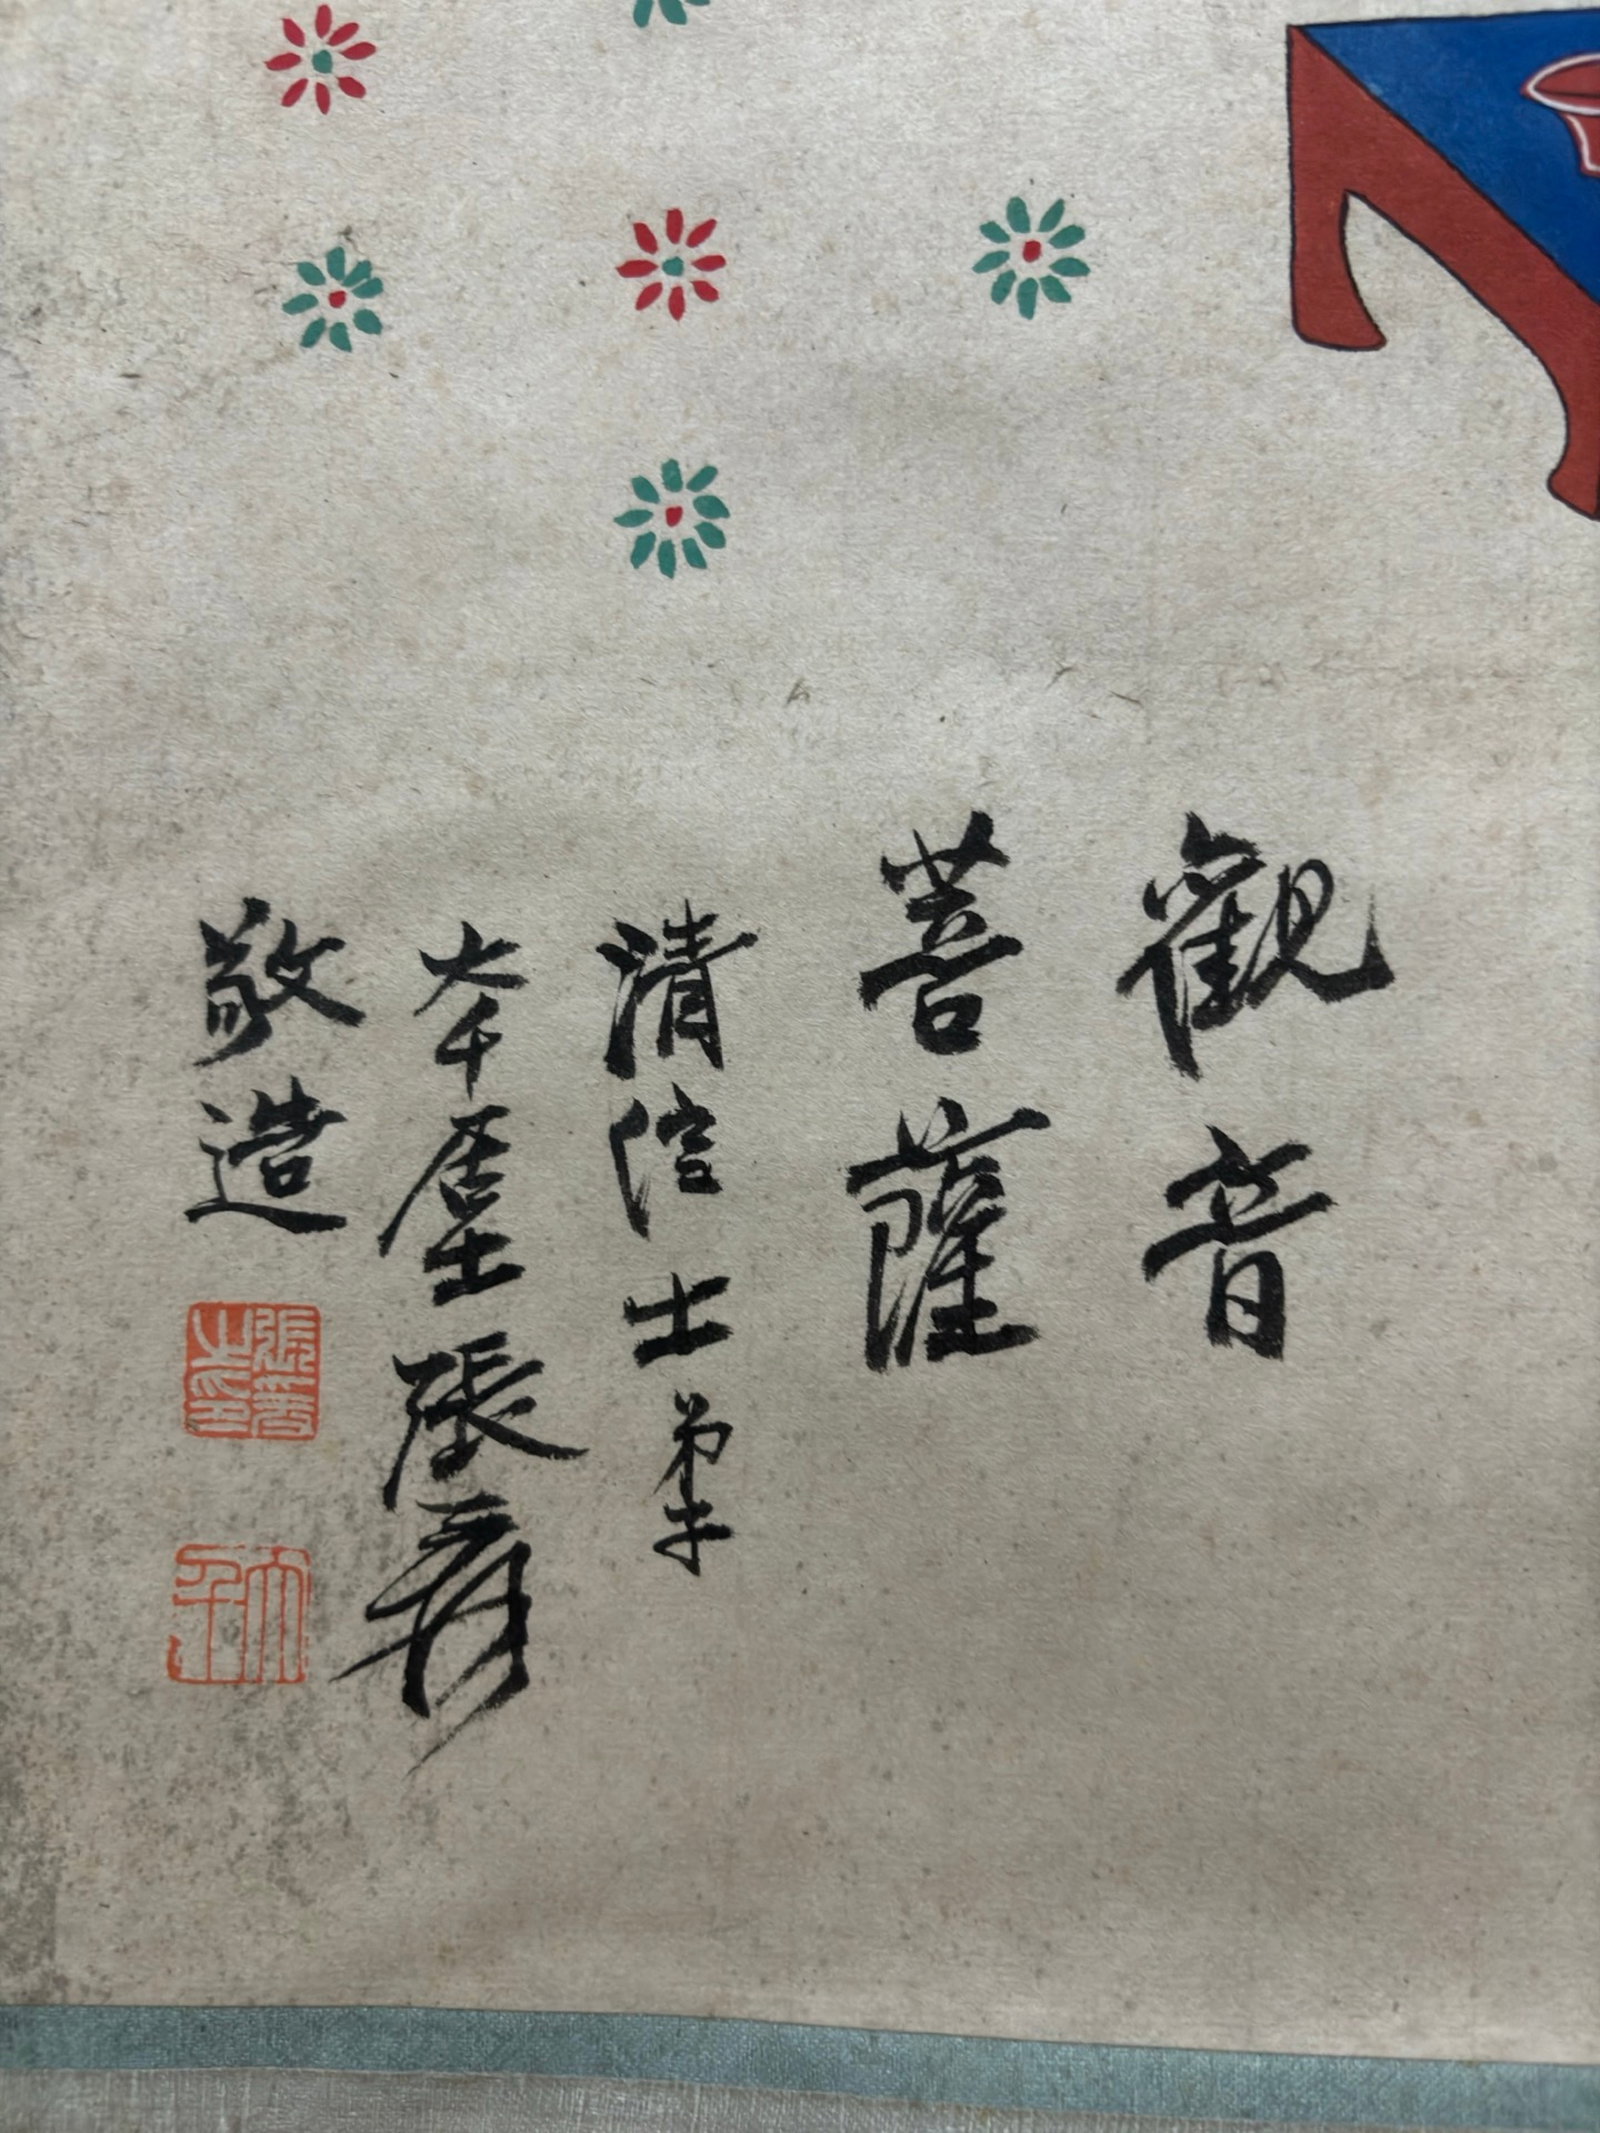 觀音
菩薩
清信士弟子
大千居士張爰
敬造
張爰之印
大千